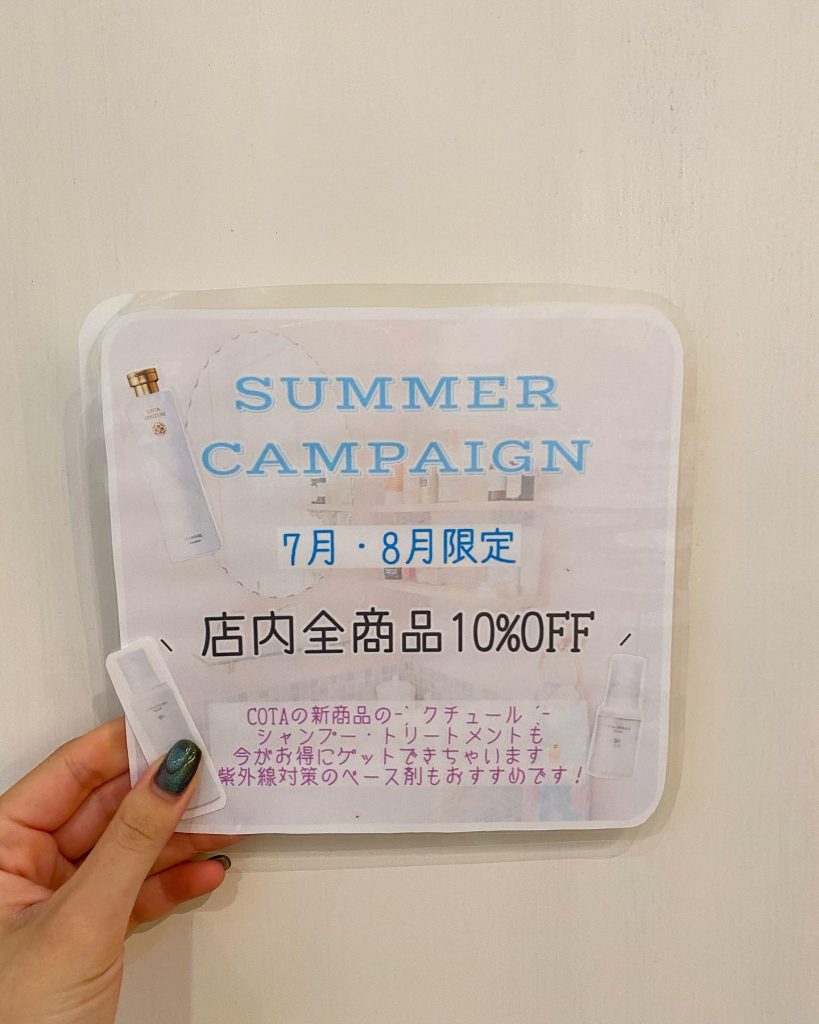 SUMMER
CAMPAIGN
7月・8月限定
店内全商品10%OFF
COTAの新商品の-̀ クチュール ́-
シャンプー・トリートメントも
今がお得にゲットできちゃいます
紫外線対策のベース剤もおすすめです!
COTA
COUTURE